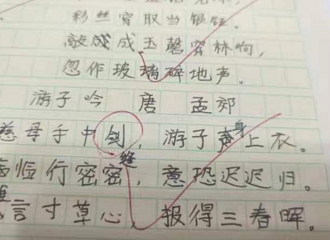 彩丝穿取当银钲。
敲成玉磬穿林响,
忽作玻璃碎地声。
游子吟 唐 孟郊
慈母手中剑,游子身上衣。
临行密密缝,意恐迟迟归。
言寸草心 报得三春晖。